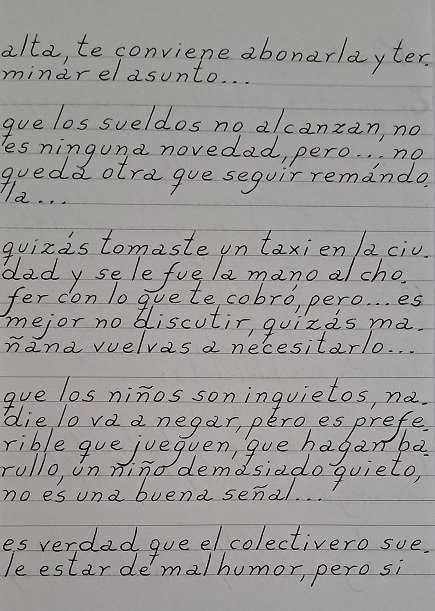 alta, te conviene abonarla y ter.
minar el asunto...
que los sueldos no alcanzan, no
es ninguna novedad, pero... no
queda otra que seguir remándo.
la...
quizás tomaste un taxi en la ciu.
dad y se le fue la mano al cho.
fer con lo que te cobró, pero... es
mejor no discutir, quizás ma.
ñana vuelvas a necesitarlo...
que los niños son inquietos, na.
die lo va a negar, pero es prefe.
rible que jueguen, que hagan ba.
rullo, un niño demasiado quieto,
no es una buena señal...
es verdad que el colectivero sue.
le estar de mal humor, pero si